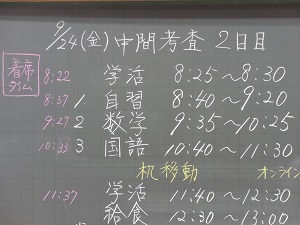 9/24(金)中間考査 2日目
着席タイム 8:22 学活 8:25〜8:30
8:37 1 自習 8:40〜9:20
9:27 2 数学 9:35〜10:25
10:33 3 国語 10:40〜11:30
机移動 オンライン
11:37 学活 11:40〜12:30
給食 12:30〜13:00